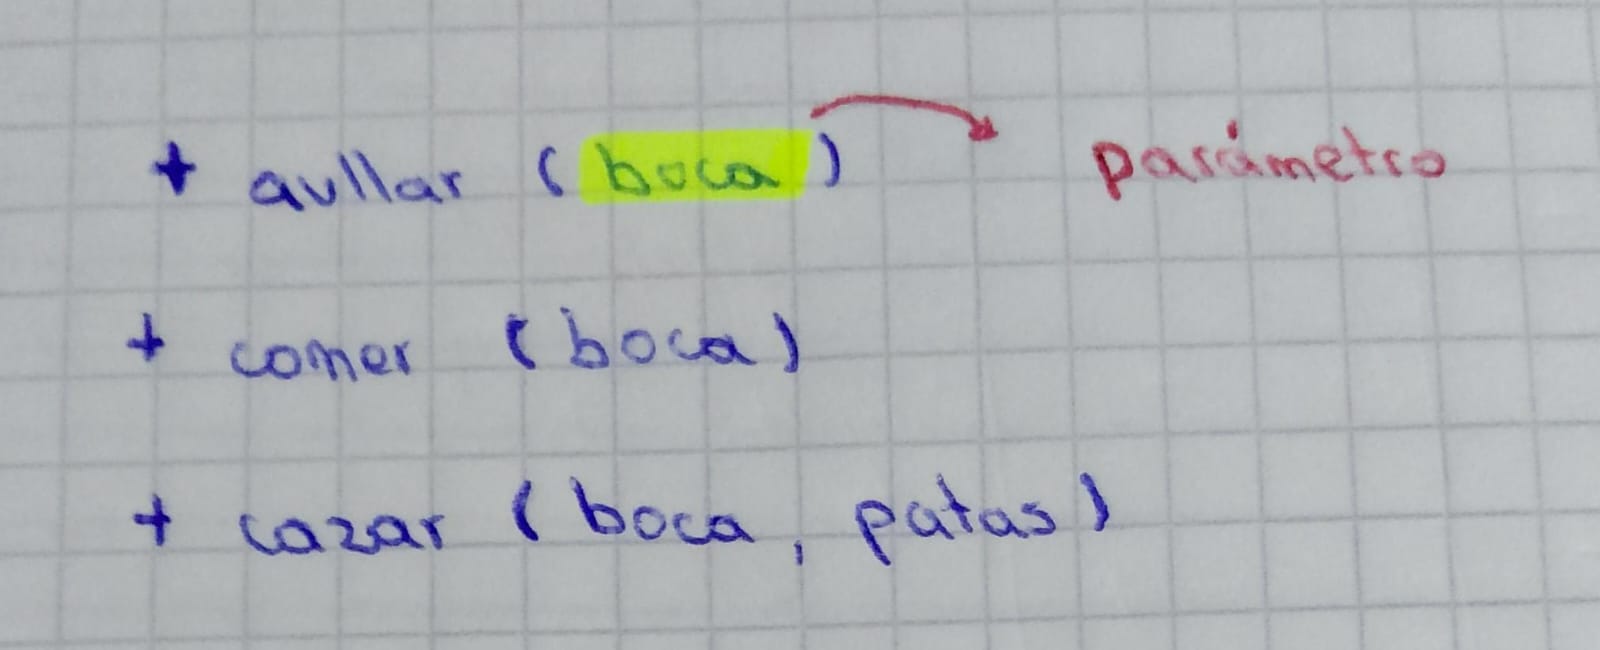 + aullar (boca) parámetro
+ comer (boca)
+ cazar (boca, patas)